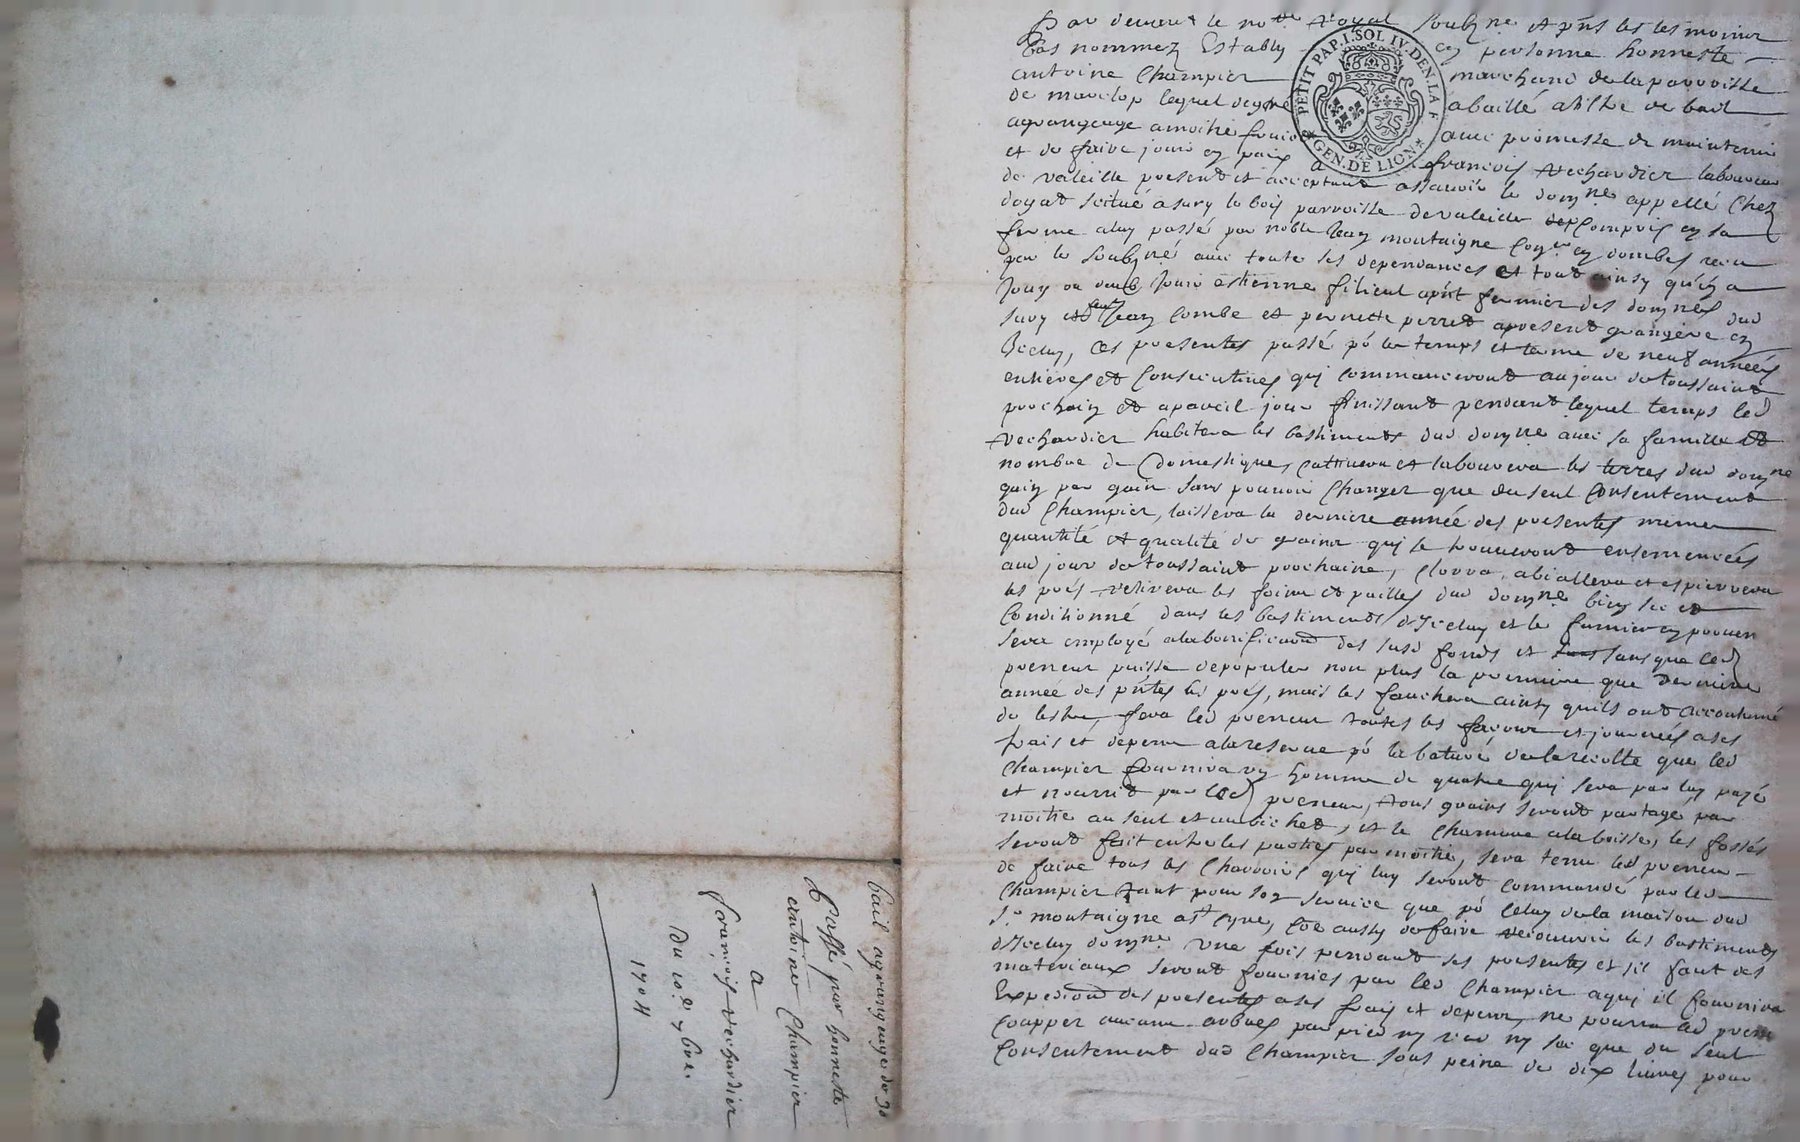 Par devant le no.re Royal soubz.ne et pñs les tesmoins
bas nommez Estably en personne honneste
antoine Champier marchand de la parroisse
de mauclop lequel de gré abaillé a tiltre de bail
agrangeage a moitié fruic avec promesse de maintenir
et de faire jouir en paix a françois Rechaudier laboureur
de valeille present et acceptant assavoir le domne appellé Chez
doyat scitué a sury le bois parroisse de valeille compris en sa
ferme a luy passée par noble Jean montaigne Con.er en dombes receu
par le soubzné avec toute ses dependances et tout ainsy qu'en a
Jouy ou deub Jouir estienne filieul apñt fermier des domnes dud
sury et Jean Combe et pernette perret apresent grangere en
Jceluy, Ces presentes passé pó le temps et terme de neuf années
entieres et Consecutives qui commanceront au jour de toussaint
prochain et a pareil jour finissant pendant lequel temps led
Rechaudier habitera les bastiments dud domne avec sa famille et
nombre de Domestiques, Cultivera et labourera les terres dud domne
gain par gain sans pouvoir Changer que du seul Consentement
dud Champier, laissera la derniere année des presentes mesme
quantité et qualité de grains qui se trouveront ensemencées
aud jour de toussaint prochaine, Clorra, abiallera et espierrera
les prés retirera les foins et pailles dud domne bien sec et
Conditionné dans les bastiments d'Jceluy et le fumier en proven
sera employé a la bonification des susd fonds et sans que led
preneur puisse depopuler non plus la premiere que derniere
année des pñtes les prés, mais les fauchera ainsy quils ont accoutumé
de lestre, fera led preneur toutes les façons et journées a ses
frais et depens a la reserve pó la bature de la recolte que led
Champier fournira un homme de quatre qui sera par luy payé
et nourrit par led preneur, tous grains seront partagé par
moitie au seul et au bichet, et le Chanvre a la boisse, les fossés
seront fait entre les parties par moitie, sera tenu led preneur
de faire tous les Charrois qui luy seront commandé par led
Champier tant pour son service que pó Celuy de la maison dud
S.r montaigne a st Cyre, Coe aussy de faire recouvrir les bastiments
d'Jceluy domne une fois pendant ses presentes et sil faut des
materiaux seront fournies par led Champier a qui il fournira
Expedion des presentes a ses frais et depens, ne pourra led preneur
Coupper aucuns arbres par pied ny rien ny sa que du seul
Consentement dud Champier sous peine de dix livres pour
PETIT PAP. I. SOL IV. DEN. LA F
GEN. DE LION
bail agrangeage de 30
Passé par honneste
antoine Champier
a
françois Rechaudier
Du 10.e 7bre.
1704